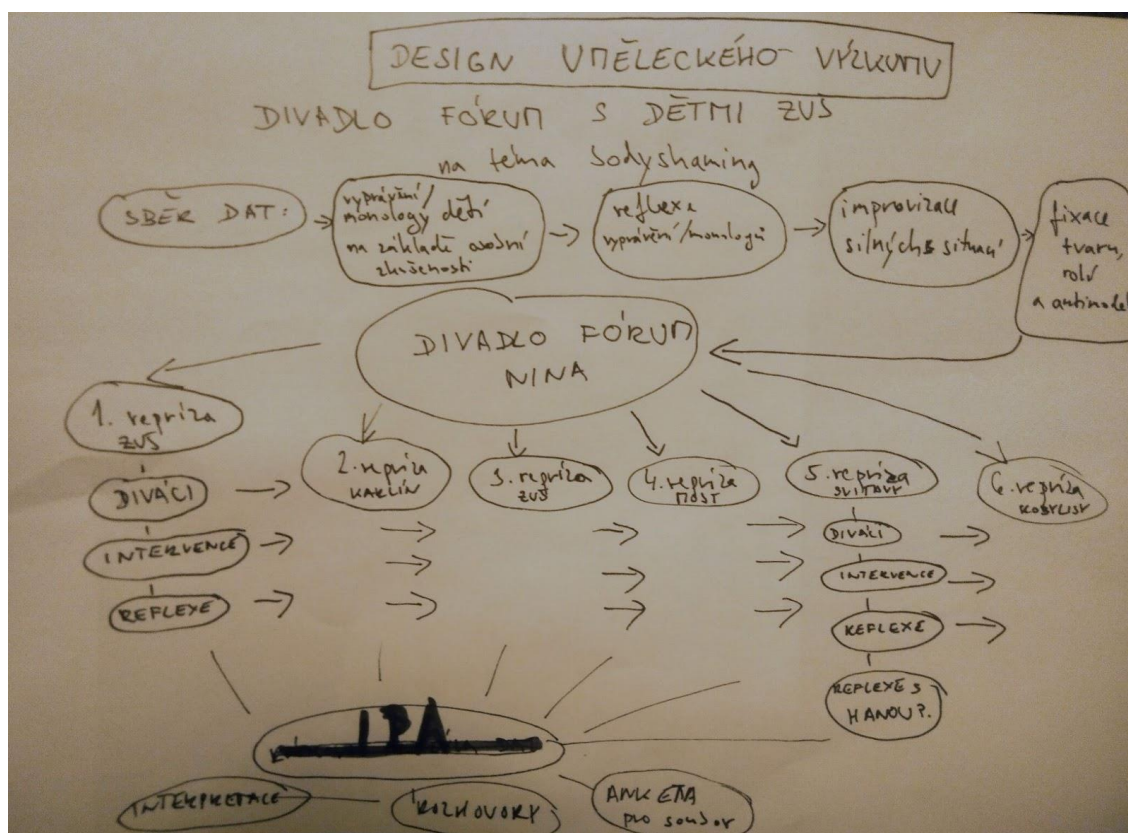 DESIGN UMĚLECKÉHO VÝZKUMU
DIVADLO FÓRUM S DĚTMI ZUŠ
na téma bodyshaming
SBĚR DAT:
vyprávění/
monology dětí
na základě osobní
zkušenosti
reflexe
vyprávění/monologů
improvizace
silných situací
fixace
tvaru,
rolí
a antimodel
DIVADLO FÓRUM
NINA
1. repríza
ZUŠ
2. repríza
KARLÍN
3. repríza
ZUŠ
4. repríza
MOST
5. repríza
SVITAVY
6. repríza
KOBYLISY
DIVÁCI
INTERVENCE
REFLEXE
DIVÁCI
INTERVENCE
REFLEXE
REFLEXE S
HANOU?.
IPA
INTERPRETACE
ROZHOVORY
ANKETA
pro soubor